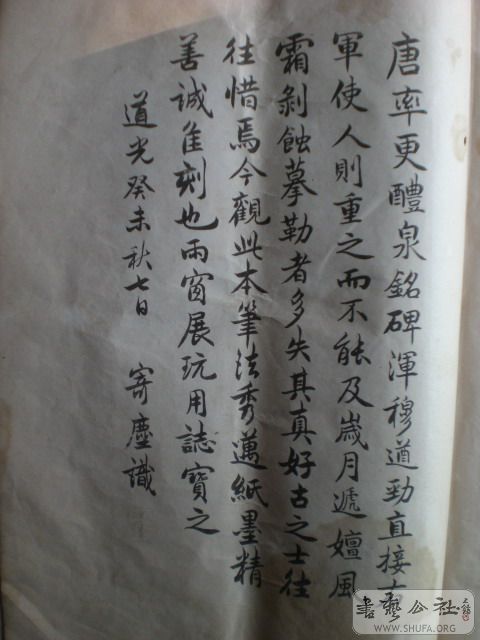 唐率更醴泉銘碑渾穆遒勁直接右
軍使人則重之而不能及歲月遞嬗風
霜剝蝕摹勒者多失其真好古之士往
往惜焉今觀此本筆法秀邁紙墨精
善誠隹刻也雨窗展玩用誌寶之
道光癸未秋七日 寄塵識
書藝公社
WWW.SHUFA.ORG